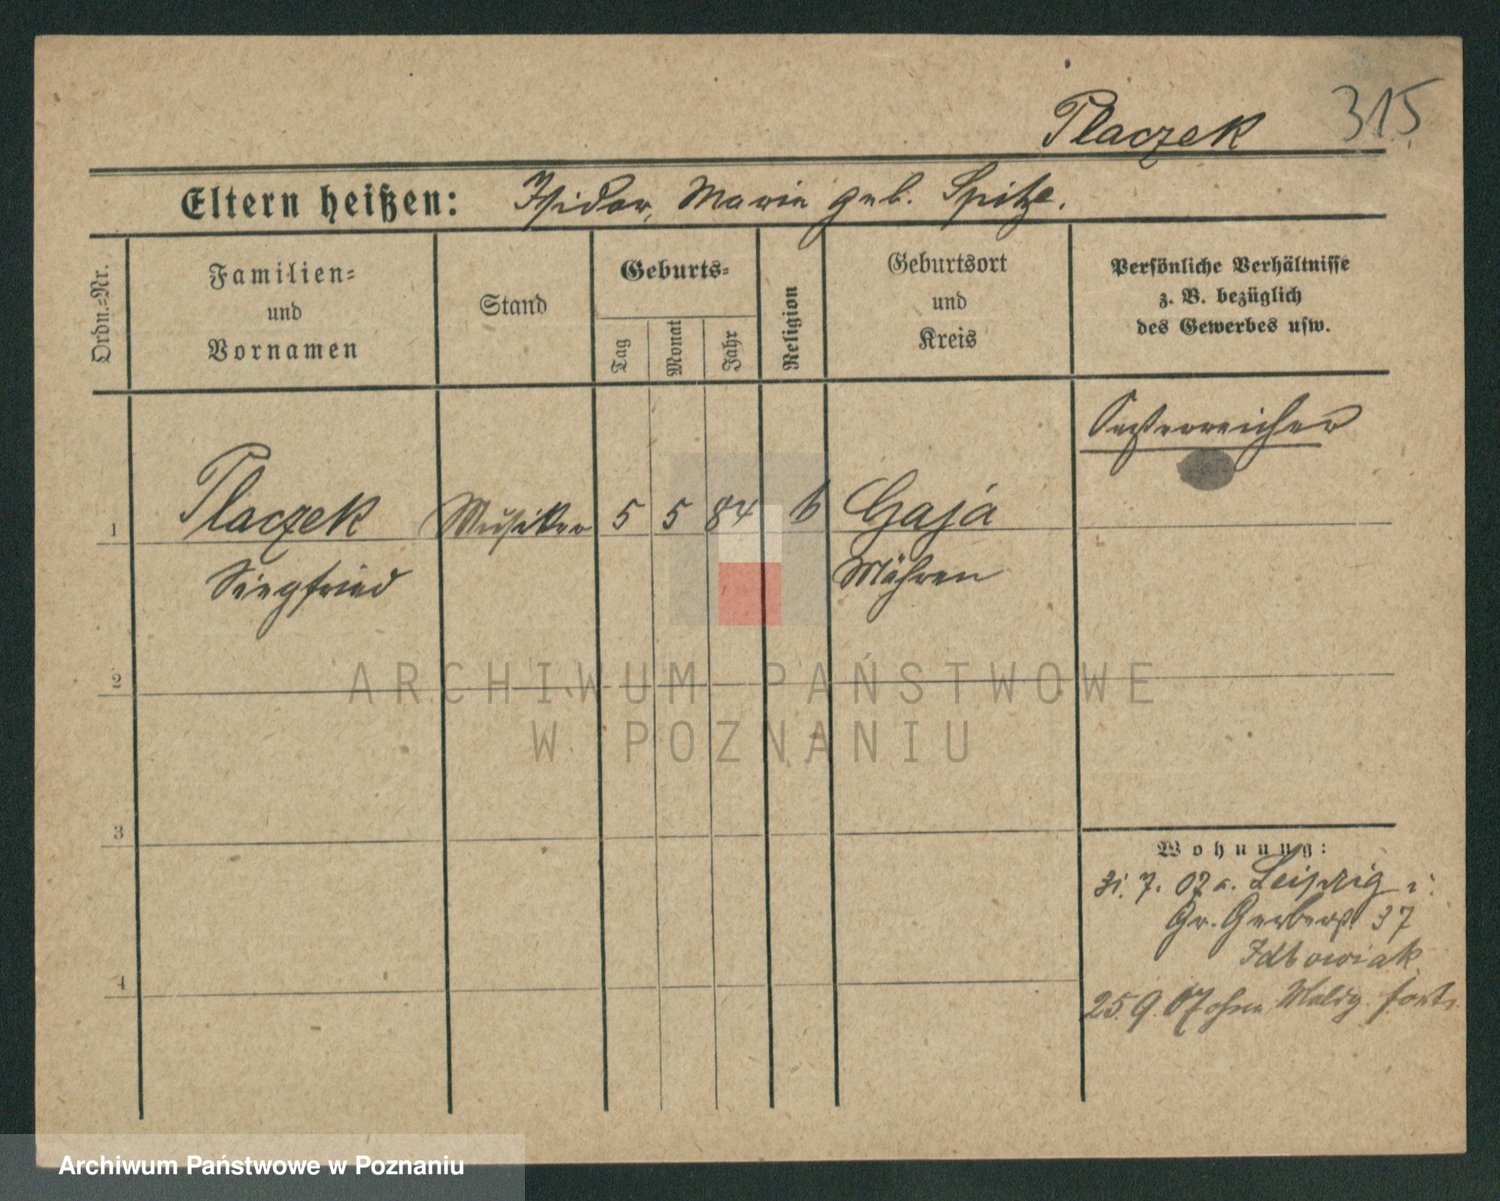 Placzek
315
Eltern heißen: Isidor, Marie geb. Spitze.
Ordn.=Nr.
Familien=
und
Vornamen
Stand
Geburts=
Tag
Monat
Jahr
Religion
Geburtsort
und
Kreis
Persönliche Verhältnisse
z. B. bezüglich
des Gewerbes usw.
Oesterreicher
1 Placzek Musiker 5 5 84 Gaja
Siegfried Mähren
2
3
4
Wohnung:
31. 7. 07 a. Leipzig i.
Gr. Gerberst 37
25. 9. 07 ohne Meldg. fort.
ARCHIWUM PAŃSTWOWE
W POZNANIU
Archiwum Państwowe w Poznaniu